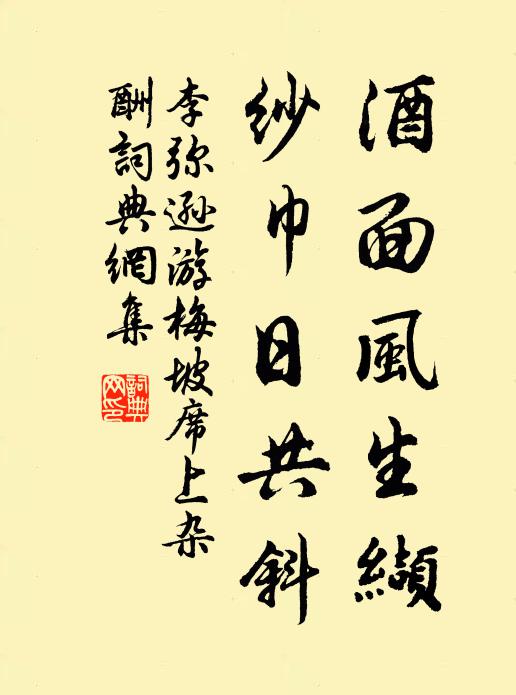 酒面風生纈
紗巾日共斜
李弥遜游梅坡席上杂
酬詞典網集
詞典网印